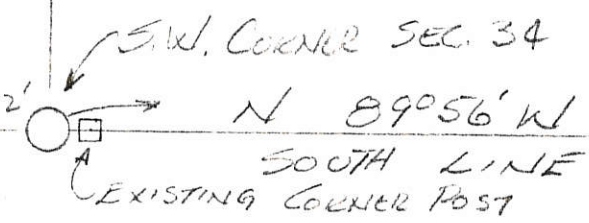 S.W. CORNER SEC. 34
2'
N 89°56' W
SOUTH LINE
EXISTING CORNER POST